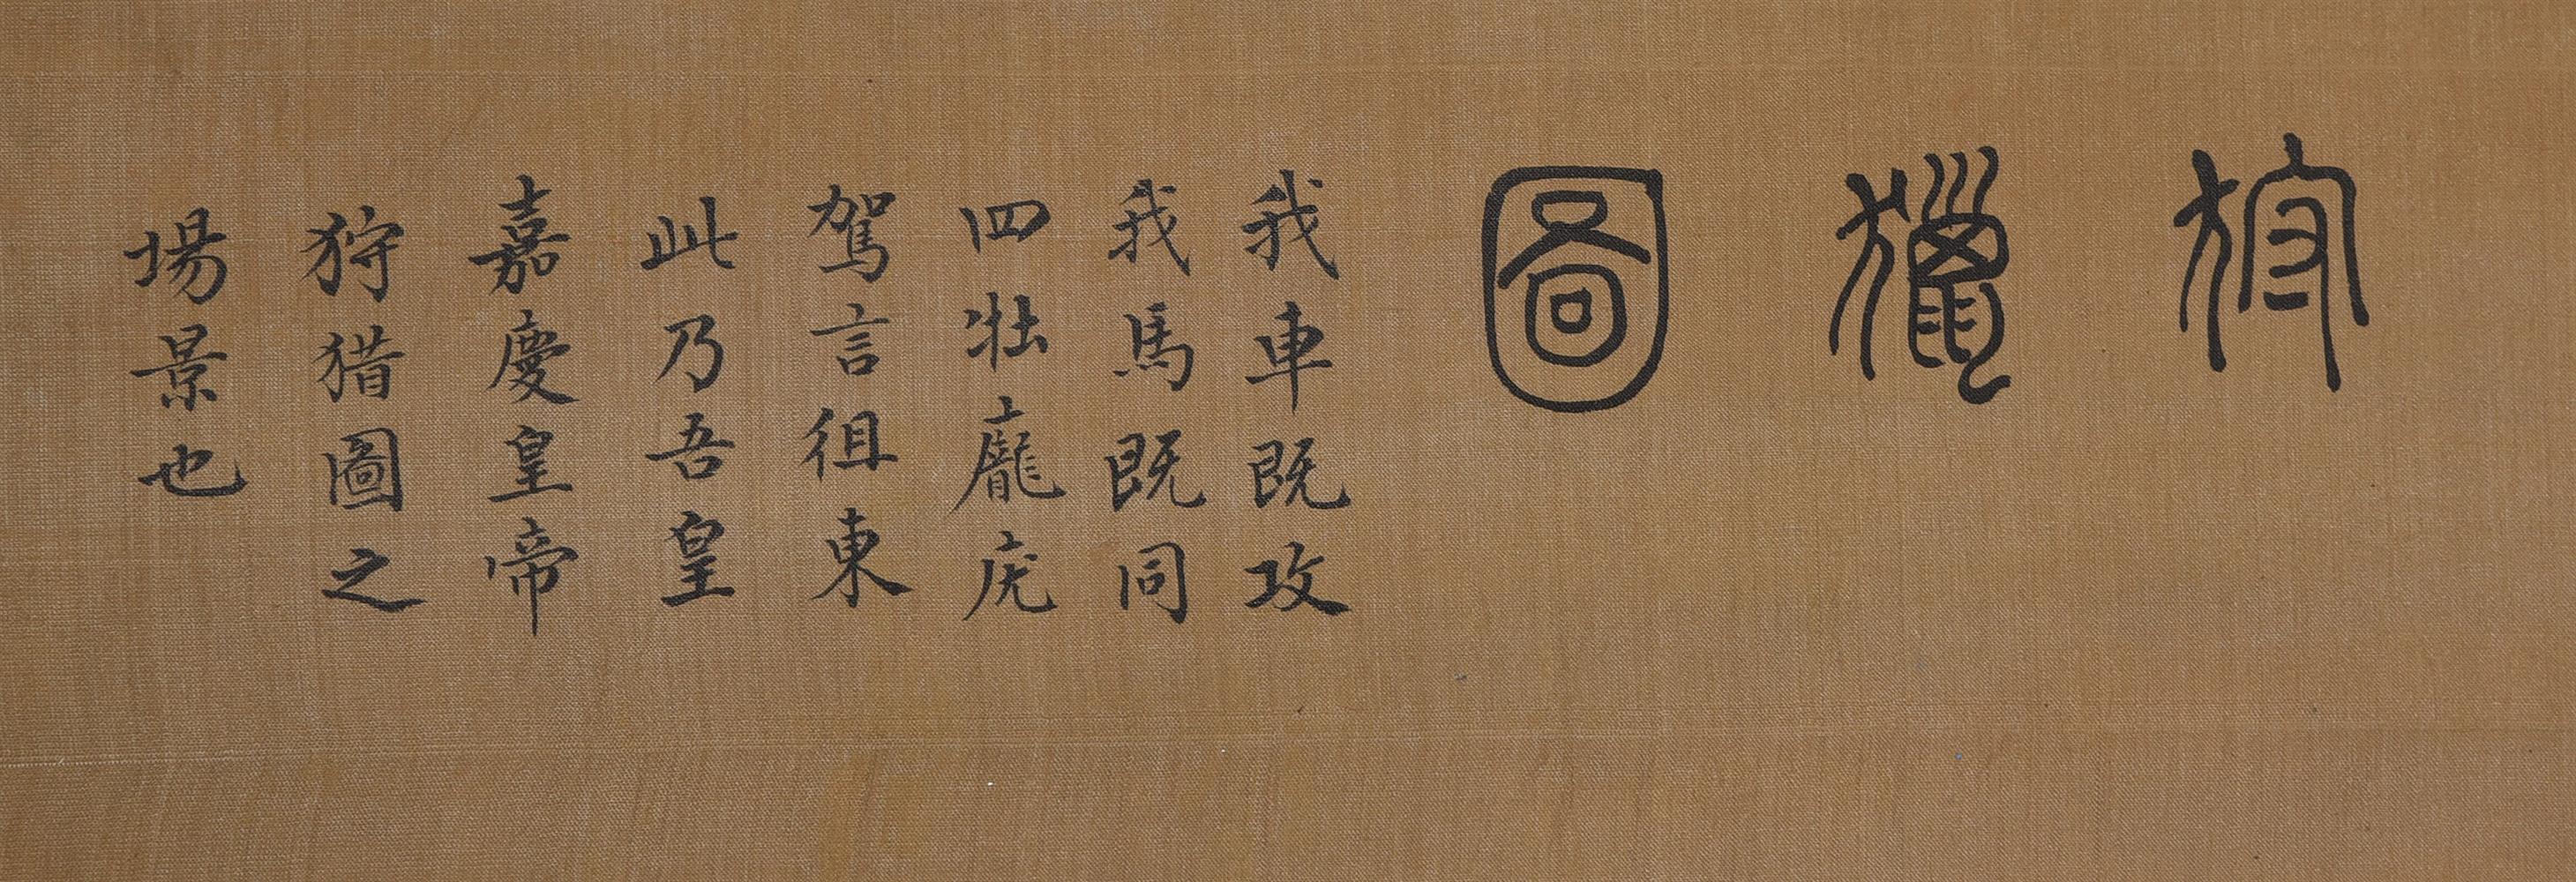 狩獵圖
我車既攻
我馬既同
四壯龐庑
駕言徂東
此乃吾皇
嘉慶皇帝
狩猎圖之
場景也